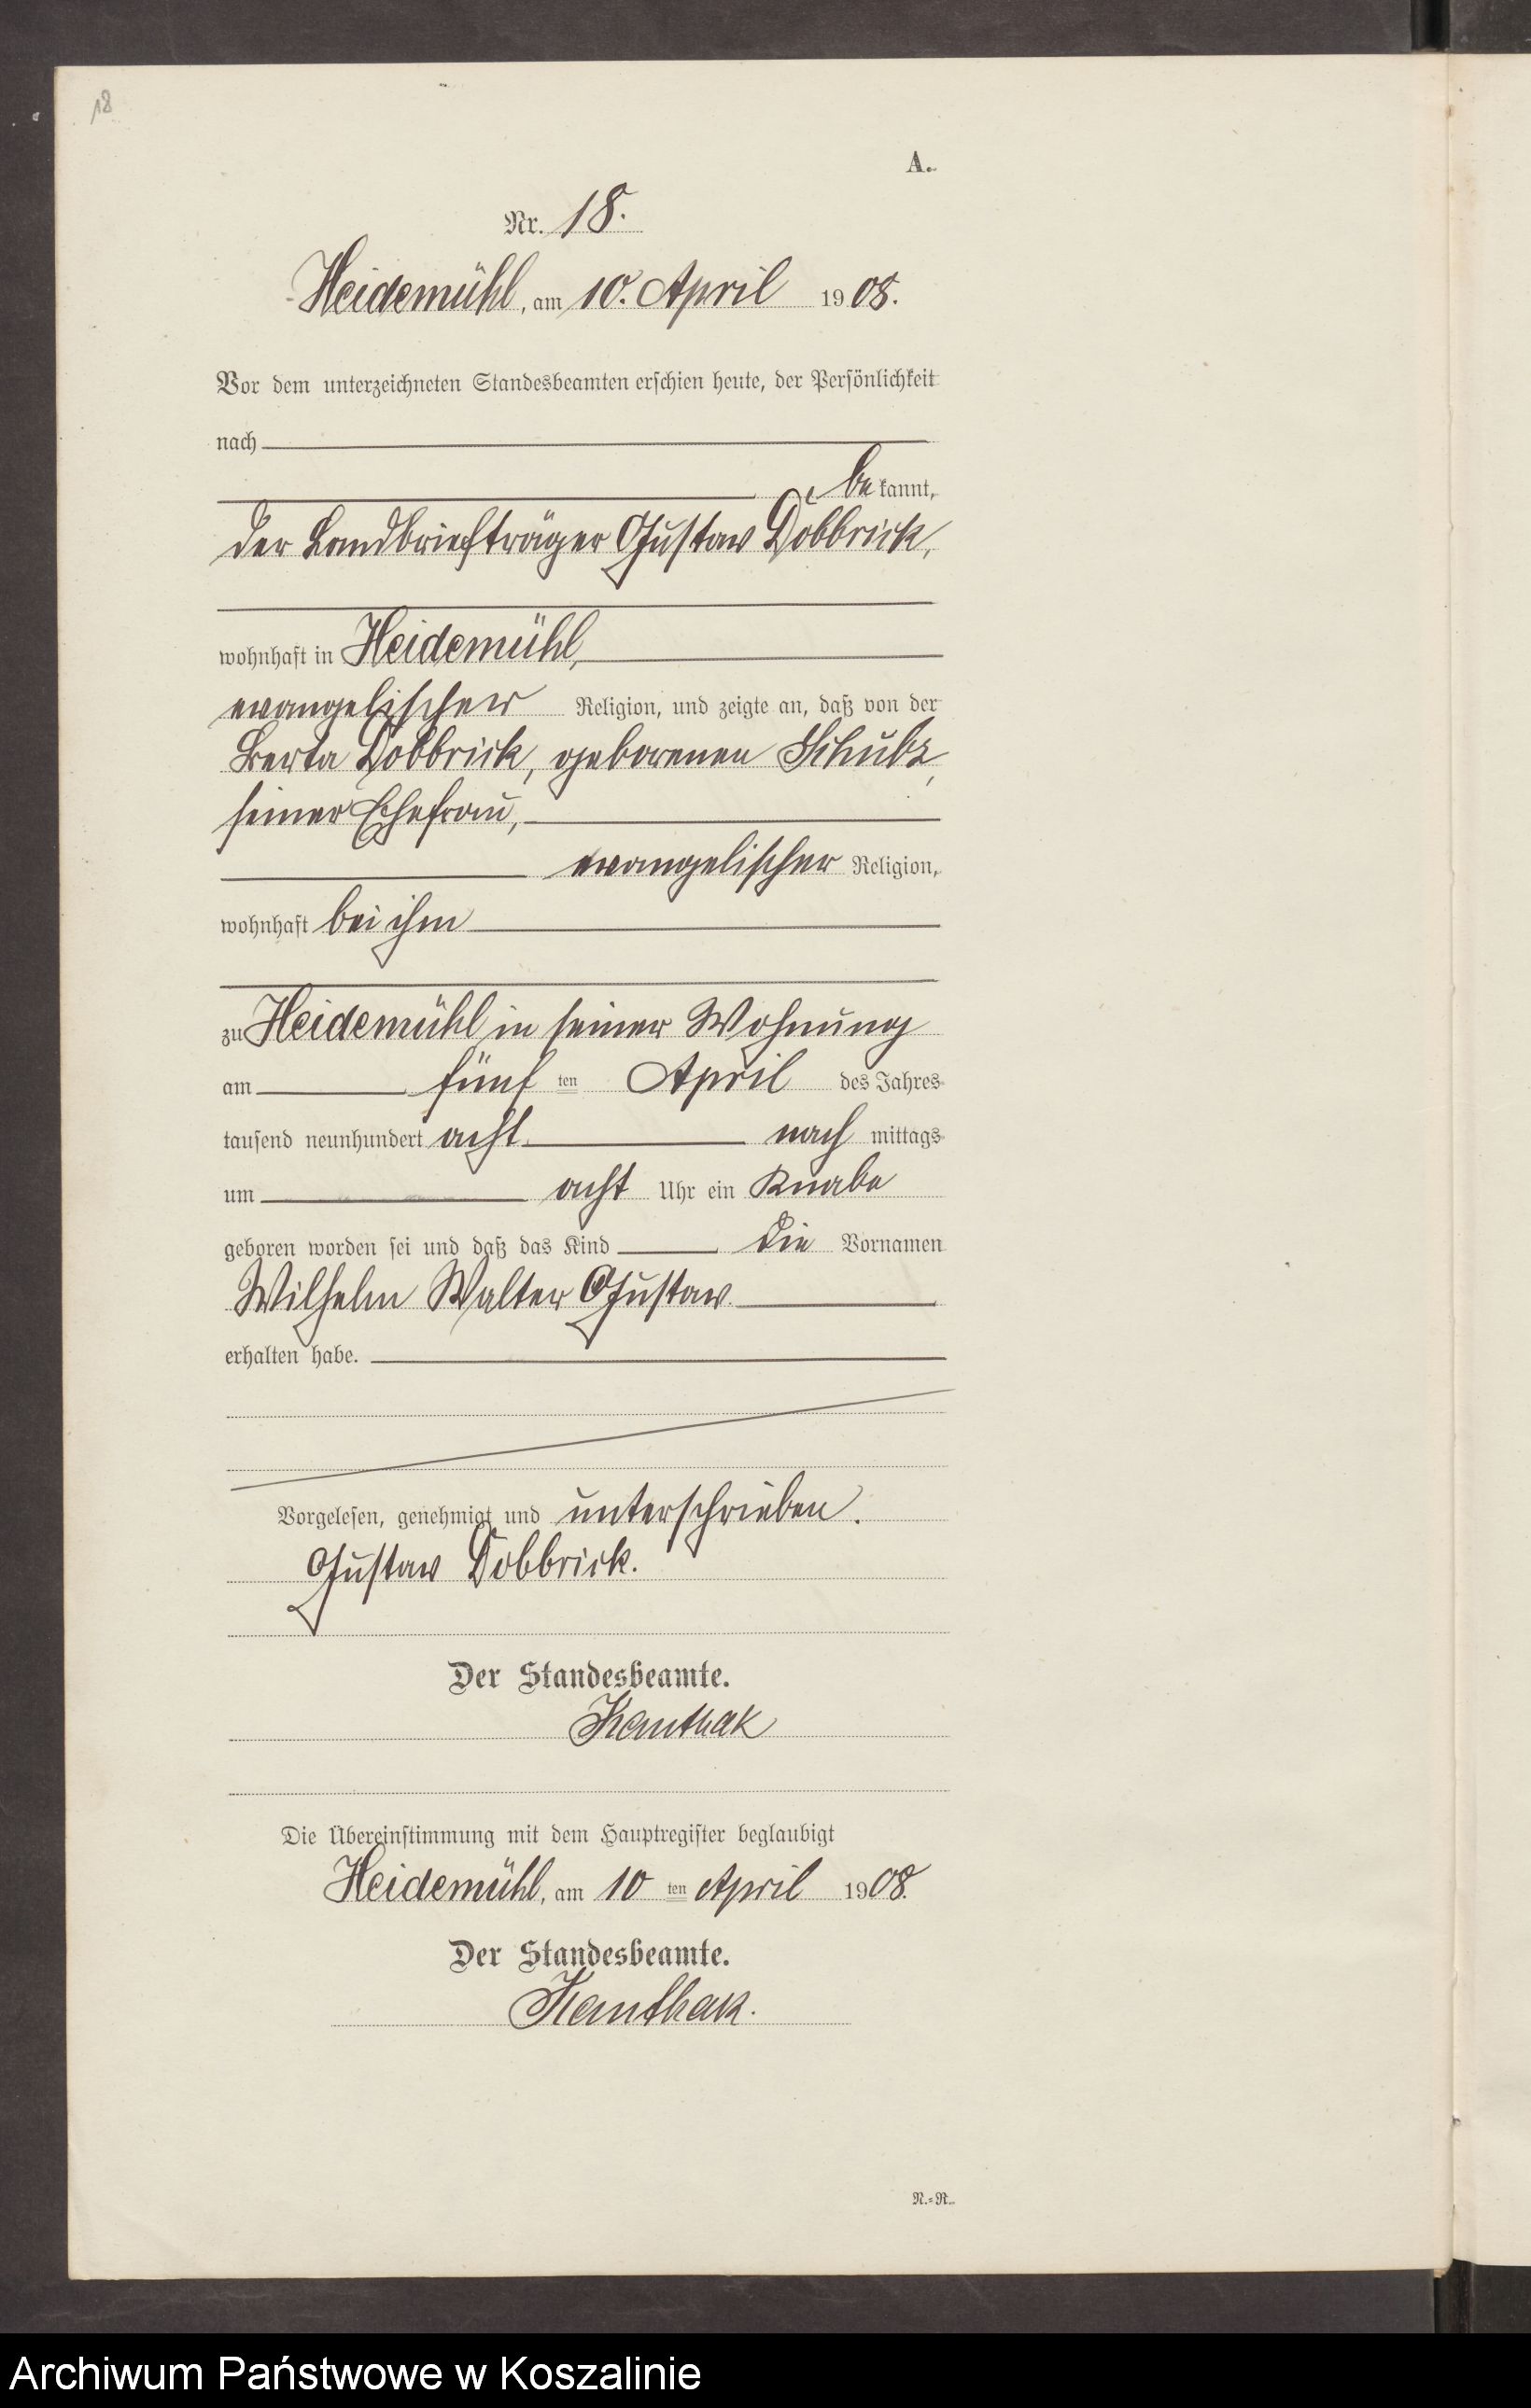 18
A.
Nr. 18.
Heidemühl, am 10. April 1908.
Vor dem unterzeichneten Standesbeamten erschien heute, der Persönlichkeit
nach
bekannt,
der Landbriefträger Gustav Dobbrick,
wohnhaft in Heidemühl,
evangelischer Religion, und zeigte an, daß von der
Berta Dobbrick, geborenen Schulz,
seiner Ehefrau,
evangelischer Religion,
wohnhaft bei ihm
zu Heidemühl in seiner Wohnung
am fünften April des Jahres
tausend neunhundert acht nachmittags
um acht Uhr ein Knabe
geboren worden sei und daß das Kind die Vornamen
Wilhelm Walter Gustav
erhalten habe.
Vorgelesen, genehmigt und unterschrieben.
Gustav Dobbrick.
Der Standesbeamte.
Kauthak
Die Übereinstimmung mit dem Hauptregister beglaubigt
Heidemühl, am 10ten April 1908.
Der Standesbeamte.
Kauthak.
N.-R.
Archiwum Państwowe w Koszalinie